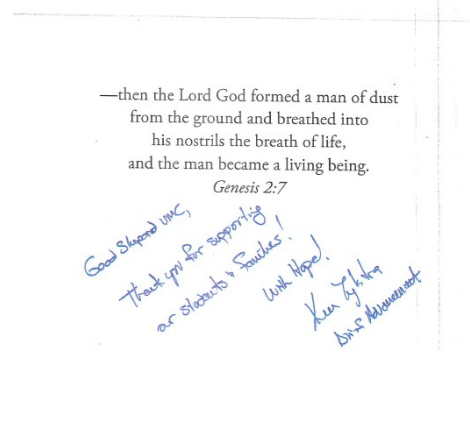 —then the Lord God formed a man of dust
from the ground and breathed into
his nostrils the breath of life,
and the man became a living being.
Genesis 2:7
Good Sheperd UMC,
Thank you for supporting
our students & families!
With Hope!
Ken
Advancement